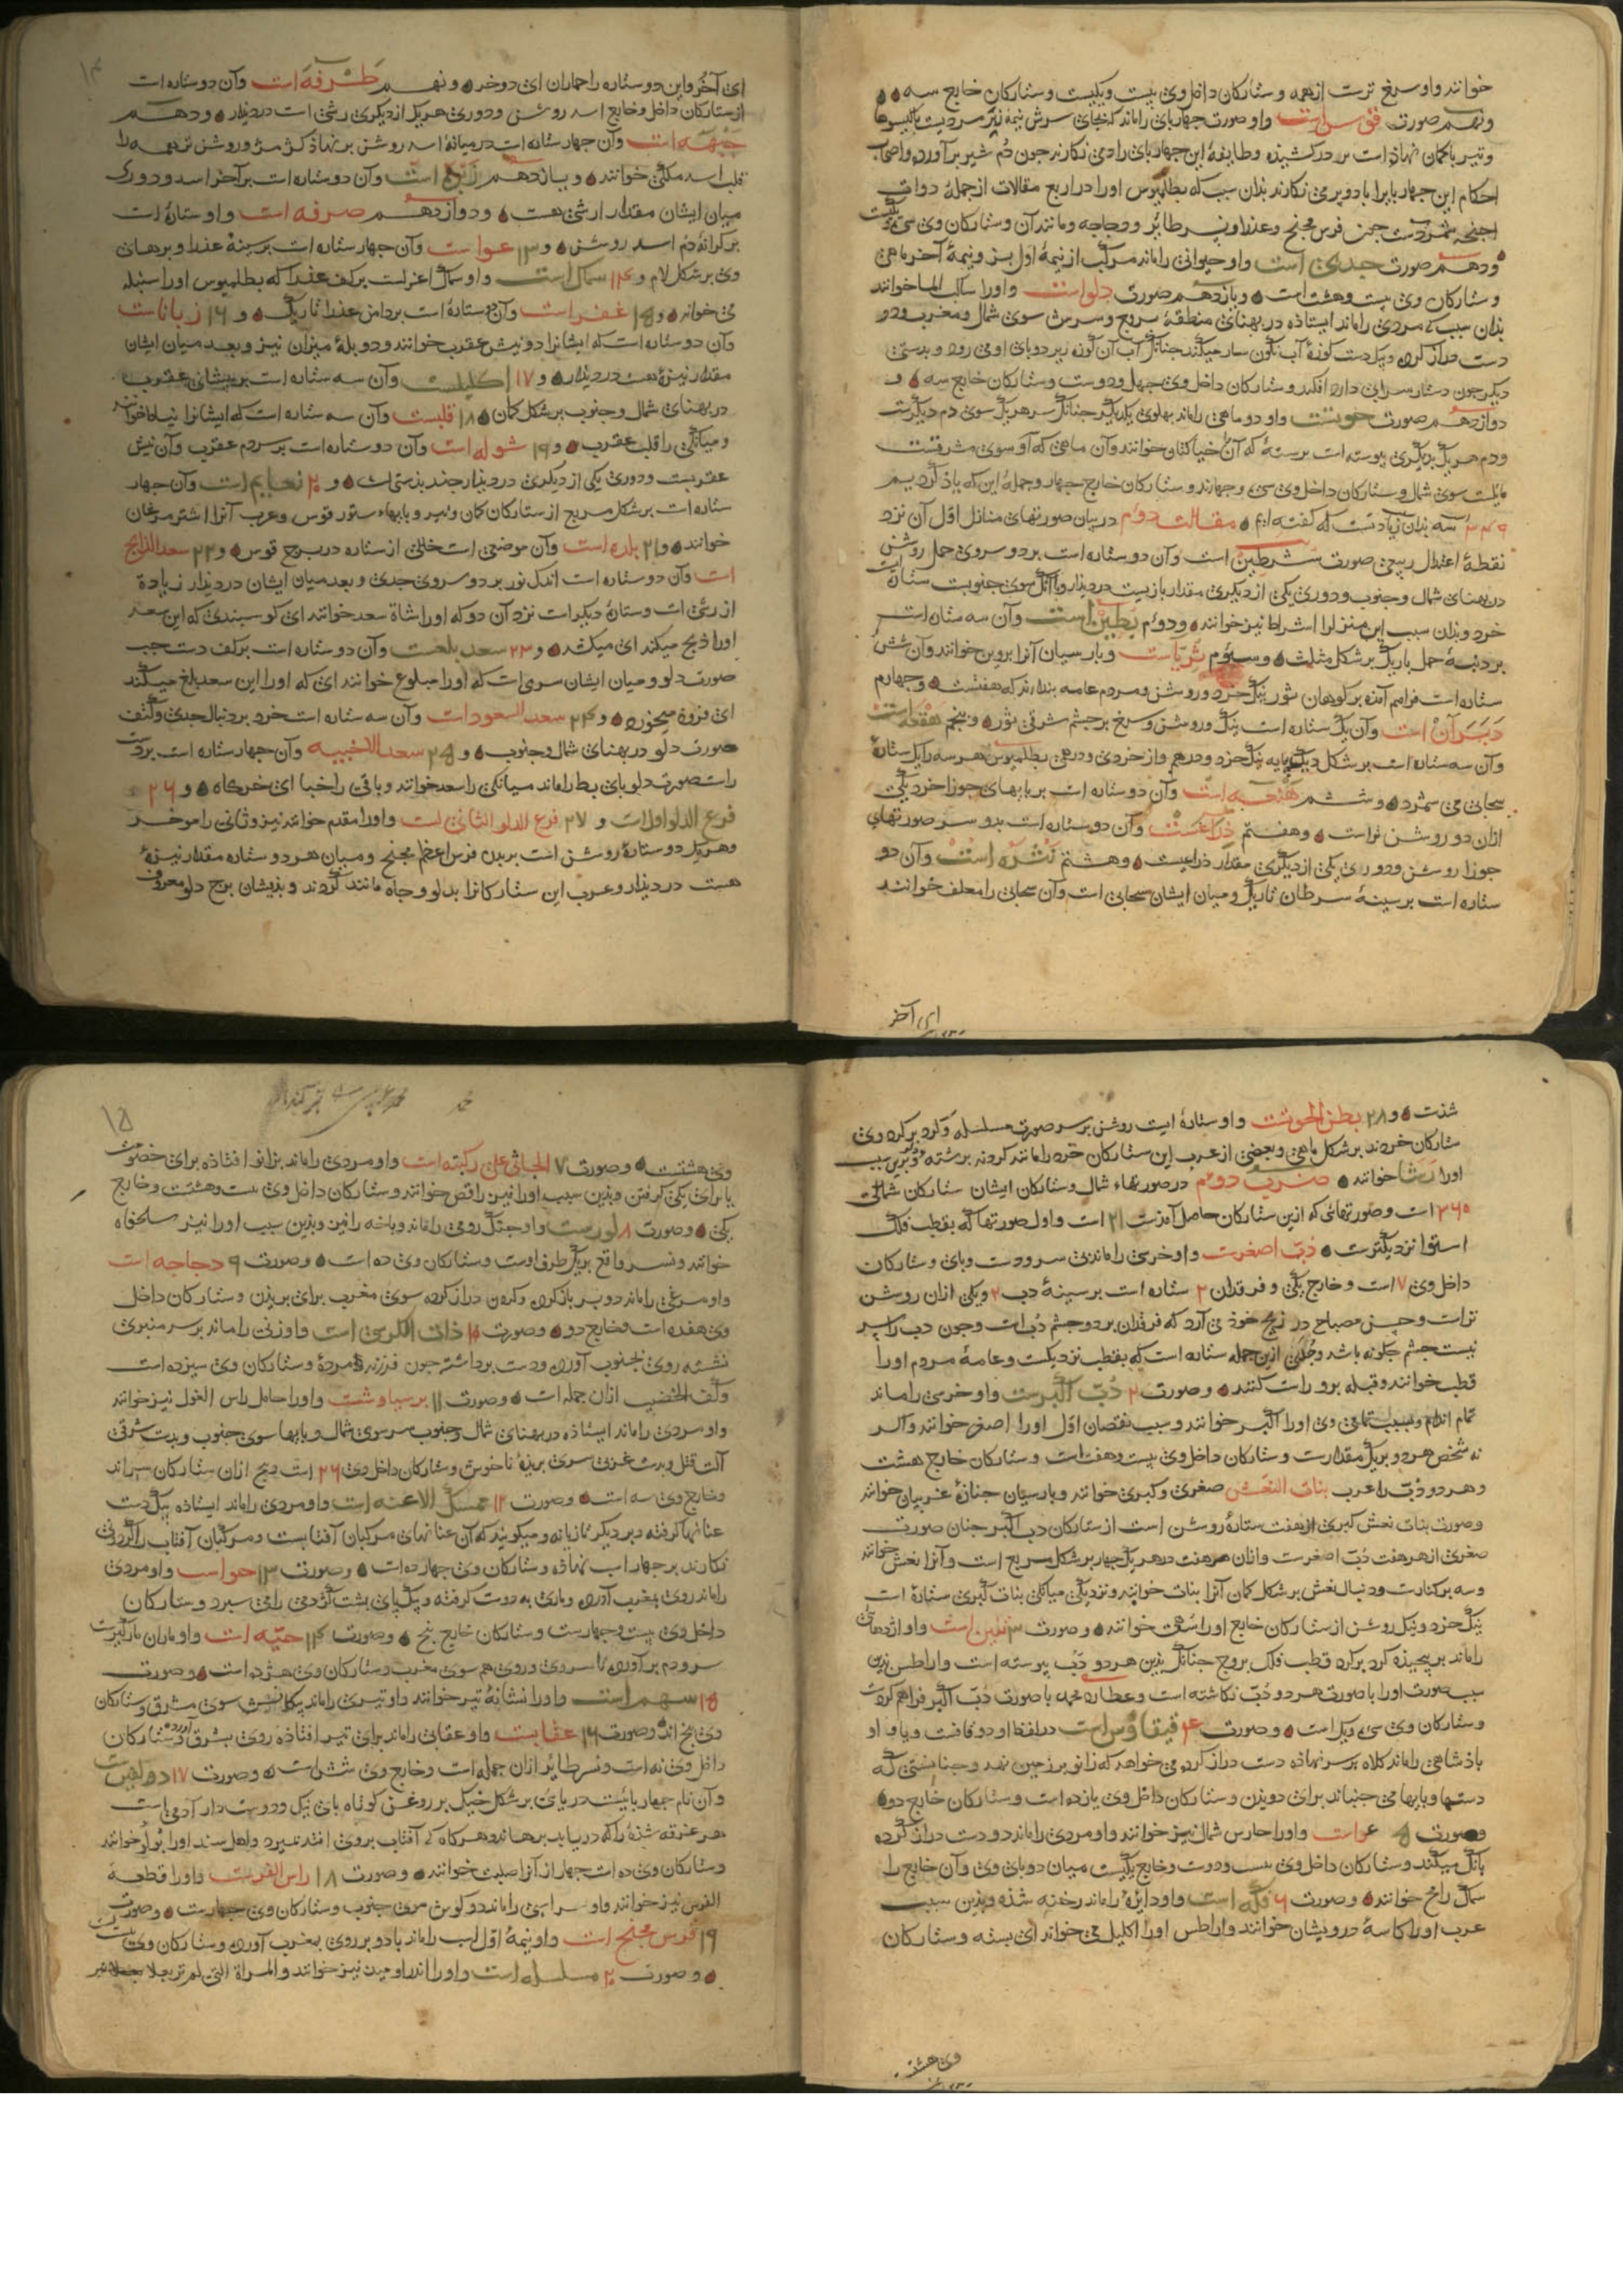 خوانند واو سرخ ترست از همه وستارکان داخل وی بیست ویکیست وستارکان خارج سه
ونهم صورت قوس است واو صورت چهارپای را ماند که بجای سرش نیمهٔ زبر مردیست با کیسوها
وتیر با کمان نهاذه است بر در کشیذه وطایفهٔ این چهارپای را دمی نکارند جون دُم شیر بر آورده واصحاب
احکام این چهارپا را بادوپر می نکارند بذان سبب که بطلمیوس اورا در اربع مقالات از جملهٔ دوات
اجنحه شمردست جون فرس مجنح وعذرا ونسر طایر ودجاجه ومانند آن وستارکان وی سی
ودهم صورت جدی است واو حیوانی را ماند مرکب از نیمهٔ اول بز ونیمهٔ آخر ماهی
وستارکان وی بیست وهشت است ویازدهم صورت دلو است واورا ساکب الما خوانند
بذان سبب که مردی را ماند ایستاذه در پهنای منطقهٔ بروج وسرش سوی شمال ومغرب ودو
دست دراز کرده وبیک دست کوزهٔ آب نکون سار میکند جنانک آب آن کوزه زیر دو پای او می رود وبدستی
دیکر جون دستار سرایی دارد افکند وستارکان داخل وی جهل ودوست وستارکان خارج سه و
دوازدهم صورت حوتست واو دو ماهی را ماند بهلوی یکدیکر جنانک سر هر یک سوی دم دیکرست
ودم هر یک بدیکری پیوسته است برسته که آن را خیط کتان خوانند وآن ماهی که او سوی مشرقست
مایلست سوی شمال وستارکان داخل وی سی وجهارند وستارکان خارج جهار وجملهٔ این که یاذ کردیم
۳۴۶ سه بذان زیادتست که کفته ایم مقالت دوم در بیان صورتهای منازل اول آن نزد
نقطهٔ اعتدال ربیعی صورت شرطین است وآن دو ستاره است بر دو سروی حمل روشن
در پهنای شمال وجنوب ودوری یکی از دیکری مقدار بازیست در دیذار وبا آنک سوی جنوبست ستارهٔ
خرد وبذان سبب این منزل را اشراط نیز خوانند ودوم بطین است وآن سه ستاره است
بر دنبهٔ حمل باریک بر شکل مثلث وسیوم ثریاست وپارسیان آنرا پروین خوانند وآن شش
ستاره است فراهم آمذه بر کوهان ثور نیک خرد وروشن ومردم عامه پندارند که هفتست وچهارم
دبران است وآن یک ستاره است نیک روشن وسرخ بر چشم شرقی ثور وپنجم هقعه است
وآن سه ستاره است بر شکل دیک پایه نیک خرد ودرهم واز خردی ودرهمی بطلمیوس هر سه را یک ستارهٔ
سحابی می شمرد وششم هنعه است وآن دو ستاره است بر پایهای جوزا خرد یکی
ازان دو روشن تراست وهفتم ذراعست وآن دو ستاره است بدو سر صورتهای
جوزا روشن ودوری یکی از دیکری مقدار ذراعیست وهشتم نثره است وآن دو
ستاره است بر سینهٔ سرطان تاریک ومیان ایشان سحابی است وآن سحابی را معلف خوانند
ای آخر
۱۴
ای آخُر واین دو ستاره را حماران ای دو خر ونهم طرفه است وآن دو ستاره است
از ستارکان داخل وخارج اسد روشن ودوری هر یک از دیکری رشی است در دیذار ودهم
جبهه است وآن جهار ستاره است در میانهٔ اسد روشن بر نهاذ کژ مژ وروشن ترین همه را
قلب اسد ملکی خوانند ویازدهم زبره است وآن دو ستاره است بر آخر اسد ودوری
میان ایشان مقدار ارشی هست ودوازدهم صرفه است واو ستارهٔ است
بر کرانهٔ دُم اسد روشن و۱۳ عواست وآن چهار ستاره است بر سینهٔ عذرا وپرهای
وی بر شکل لام و۱۴ سماک است واو سماک اعزلست بر کف عذرا که بطلمیوس اورا سنبله
می خواند و۱۵ غفر است وآن دو ستاره است بر دامن عذرا تاریک و ۱۶ زباناست
وآن دو ستاره است که ایشانرا دو نیش عقرب خوانند ودو پلهٔ میزان نیز وبعد میان ایشان
مقدار نیزهٔ هست در دیذار و ۱۷ اکلیلست وآن سه ستاره است بر پیشانی عقرب
در پهنای شمال وجنوب بر شکل کمان ۱۸ قلبست وآن سه ستاره است که ایشانرا نیاط خوانند
ومیانکی را قلب عقرب و۱۹ شوله است وآن دو ستاره است بر سر دم عقرب وآن نیش
عقربست ودوری یکی از دیکری در دیذار چند بذستی است و ۲۰ نعایم است وآن چهار
ستاره است بر شکل مربع از ستارکان کمان وتیر وپایهاء ستور قوس وعرب آنرا اشتر مرغان
خوانند و۲۱ بلده است وآن موضعی است خالی از ستاره در برج قوس و۲۲ سعد الذابح
است وآن دو ستاره است اندک نور بر دو سروی جدی وبعد میان ایشان در دیذار زیاده
از رشی است وستارهٔ دیکر است نزد آن دو که اورا شاة سعد خوانند ای کوسپندی که این سعد
اورا ذبح میکند ای میکشد و ۲۳ سعد بلعست وآن دو ستاره است بر کف دست چپ
صورت دلو ومیان ایشان سری است که اورا مبلوع خوانند ای که اورا این سعد بلع میکند
ای فرو میخورد و ۲۴ سعد السعودات وآن سه ستاره است خرد بر دنبال جدی وکتف
صورت دلو در پهنای شمال وجنوب و ۲۵ سعد الاخبیه وآن چهار ستاره است بر دست
راست صورت دلو پای بط را ماند میانکی را سعد خوانند وباقی را خبا ای خرکاه و ۲۶
فرغ الدلو اول است و ۲۷ فرغ الدلو الثانی است واورا مقدم خوانند نیز وثانی را موخر
وهر یک دو ستارهٔ روشن است بر بدن فرس اعظم مجنح ومیان هر دو ستاره مقدار نیزهٔ
هست در دیذار وعرب این ستارکانرا بدلو وچاه مانند کردند وبذیشان برج دلو معروف
شذست و ۲۸ بطن الحوتست واو ستارهٔ ایست روشن بر سر صورت مسلسله وکرد بر کرد وی
ستارکان خردند بر شکل ماهی وبعضی از عرب این ستارکان خرد را مانند کردند برشته وبدین سبب
اورا رشا خوانند ضرب دوم در صورتهاء شمال وستارکان ایشان ستارکان شمالی
۳۶۰ است وصورتهائی که ازین ستارکان حاصل آمذست ۲۱ است واول صورتها که بقطب فلک
استوا نزدیکترست دُب اصغرست واو خرسی را ماند بی سر ودست وپای وستارکان
داخل وی ۷ است وخارج یکی وفرقدان ۲ ستاره است بر سینهٔ دب ویکی ازان روشن
تراست وحسن مصباح در زیج خوذ می آرد که فرقدان بر دو چشم دُب است وچون دب را سر
نیست چشم چکونه باشذ وجُدی ازین جمله ستاره است که بقطب نزدیکست وعامهٔ مردم اورا
قطب خوانند وقبله برو راست کنند وصورت ۲ دُبّ اکبرست واو خرسی را ماند
تمام اندام وبسبب تمامی وی اورا اکبر خوانند وسبب نقصان اول اورا اصغر خوانند واکر
نه شخص هر دو بریک مقدارست وستارکان داخل وی بیست وهفت است وستارکان خارج هشت
وهر دو دُب را عرب بنات النعش صغری وکبری خوانند وپارسیان جنازهٔ غریبان خوانند
وصورت بنات نعش کبری از هفت ستارهٔ روشن است از ستارکان دب اکبر چنان صورت
صغری از هر هفت دُب اصغرست وازان هر هفت در هر یک چهار بر شکل مربع است وآنرا نعش خوانند
وسه بر کنارست ودنبال نعش بر شکل کمان آنرا بنات خوانند ونزدیکی میانکی بنات کبری ستارهٔ است
نیک خرد ونیک روشن از ستارکان خارج اورا سُهی خوانند وصورت ۳ تنین است واو اژدهائی
را ماند بر پیچیذه کرد بر کرد قطب فلک بروج چنانک بذین هر دو دُب پیوسته است واراطس بذین
سبب صورت اورا با صورت هر دو دُب نکاشته است وعطارد محمد با صورت دُب اکبر فراهم کردست
وستارکان وی سی ویک است وصورت ۴ قیقاؤس است در لفظ او دو قافست ویا واو
پاذشاهی را ماند کلاه بر سر نهاذه دست دراز کرده می خواهد که زانو بر زمین نهد وجنابشتی که
دستها وپایها می جنباند برای دویذن وستارکان داخل وی یازده است وستارکان خارج دو
وصورت ۵ عواست واورا حارس شمال نیز خوانند واو مردی را ماند دو دست دراز کرده
بانک میکند وستارکان داخل وی بیست ودوست وخارج یکیست میان دو پای وی وآن خارج را
سماک رامح خوانند وصورت ۶ فکه است واو دایرهٔ را ماند رخنه شذه وبذین سبب
عرب اورا کاسهٔ درویشان خوانند واراطس اورا اکلیل می خواند ای بسته وستارکان
وی هشت
۱۵
وی هشتست وصورت ۷ الجاثی علی رکبته است واو مردی را ماند بزانو افتاذه برای خصومت
یا برای یکی کرفتن وبذین سبب اورا نیز راقص خوانند وستارکان داخل وی بیست وهشتست وخارج
یکی وصورت ۸ لورست واو چنک رومی را ماند وباخه را نیز وبذین سبب اورا نیز سلحفاه
خوانند ونسر واقع بریک طرف اوست وستارکان وی ده است وصورت ۹ دجاجه است
واو مرغی را ماند دو پر باز کرده وکردن دراز کرده سوی مغرب برای پریذن وستارکان داخل
وی هفده است وخارج دو وصورت ۱۰ ذات الکرسی است واو زنی را ماند بر سر منبری
نشسته روی بجنوب آورده ودست برداشته چون فرزند مردهٔ وستارکان وی سیزده است
وکف الخضیب ازان جمله است وصورت ۱۱ برسیاوشست واورا حامل راس الغول نیز خوانند
واو مردی را ماند ایستاذه در پهنای شمال وجنوب سر سوی شمال وپایها سوی جنوب وبدست شرقی
آلت قتل وبدست غربی سری بریذهٔ ناخوش وستارکان داخل وی ۲۶ است پنج ازان ستارکان سراند
وخارج وی سه است وصورت ۱۲ ممسک الاعنه است واو مردی را ماند ایستاذه بیک دست
عنانها کرفته وبدیکر تازیانه ومیکویند که آن عنانهای مرکبان آفتابست ومرکبان آفتاب را کردونی
نکارند بر چهار اسب نهاذه وستارکان وی چهارده است وصورت ۱۳ حواست واو مردی
را ماند روی بمغرب آورده وماری به دو دست کرفته وبیک پای پشت کژدمی را می سپرد وستارکان
داخل وی بیست وچهارست وستارکان خارج پنج وصورت ۱۴ حیّه است واو ماران مارکیرست
سر ودم بر آورده تا سر وی وروی هم سوی مغرب وستارکان وی هژده است وصورت
۱۵ سهم است واورا نشانهٔ تیر خوانند واو تیری را ماند پیکانش سوی مشرق وستارکان
وی پنج اند وصورت ۱۶ عقابست واو عقابی را ماند برای تیر افتاذه روی بشرق آورده وستارکان
داخل وی نه است ونسر طایر ازان جمله است وخارج وی شش است وصورت ۱۷ دولفین است
وآن نام چهارپائیست دریایی بر شکل خیک پر روغن کوتاه پای نیک ودوست دار آدمی است
هر غرقه شذهٔ را که دریابد برهاند وهر کاه که آفتاب بر وی افتد بمیرد واهل سند اورا بُولُو خوانند
وستارکان وی ده است چهار از آنرا صلیب خوانند وصورت ۱۸ راس الفرس است واورا قطعة
الفرس نیز خوانند واو سر اسبی را ماند دو کوش سوی جنوب وستارکان وی چهارست وصورت
۱۹ فرس مجنح است واو نیمهٔ اول اسب را ماند با دو پر روی بمغرب آورده وستارکان وی بیست
وصورت ۲۰ مسلسله است واورا اندرومیدا نیز خوانند والمراة التی لم تر بعلا